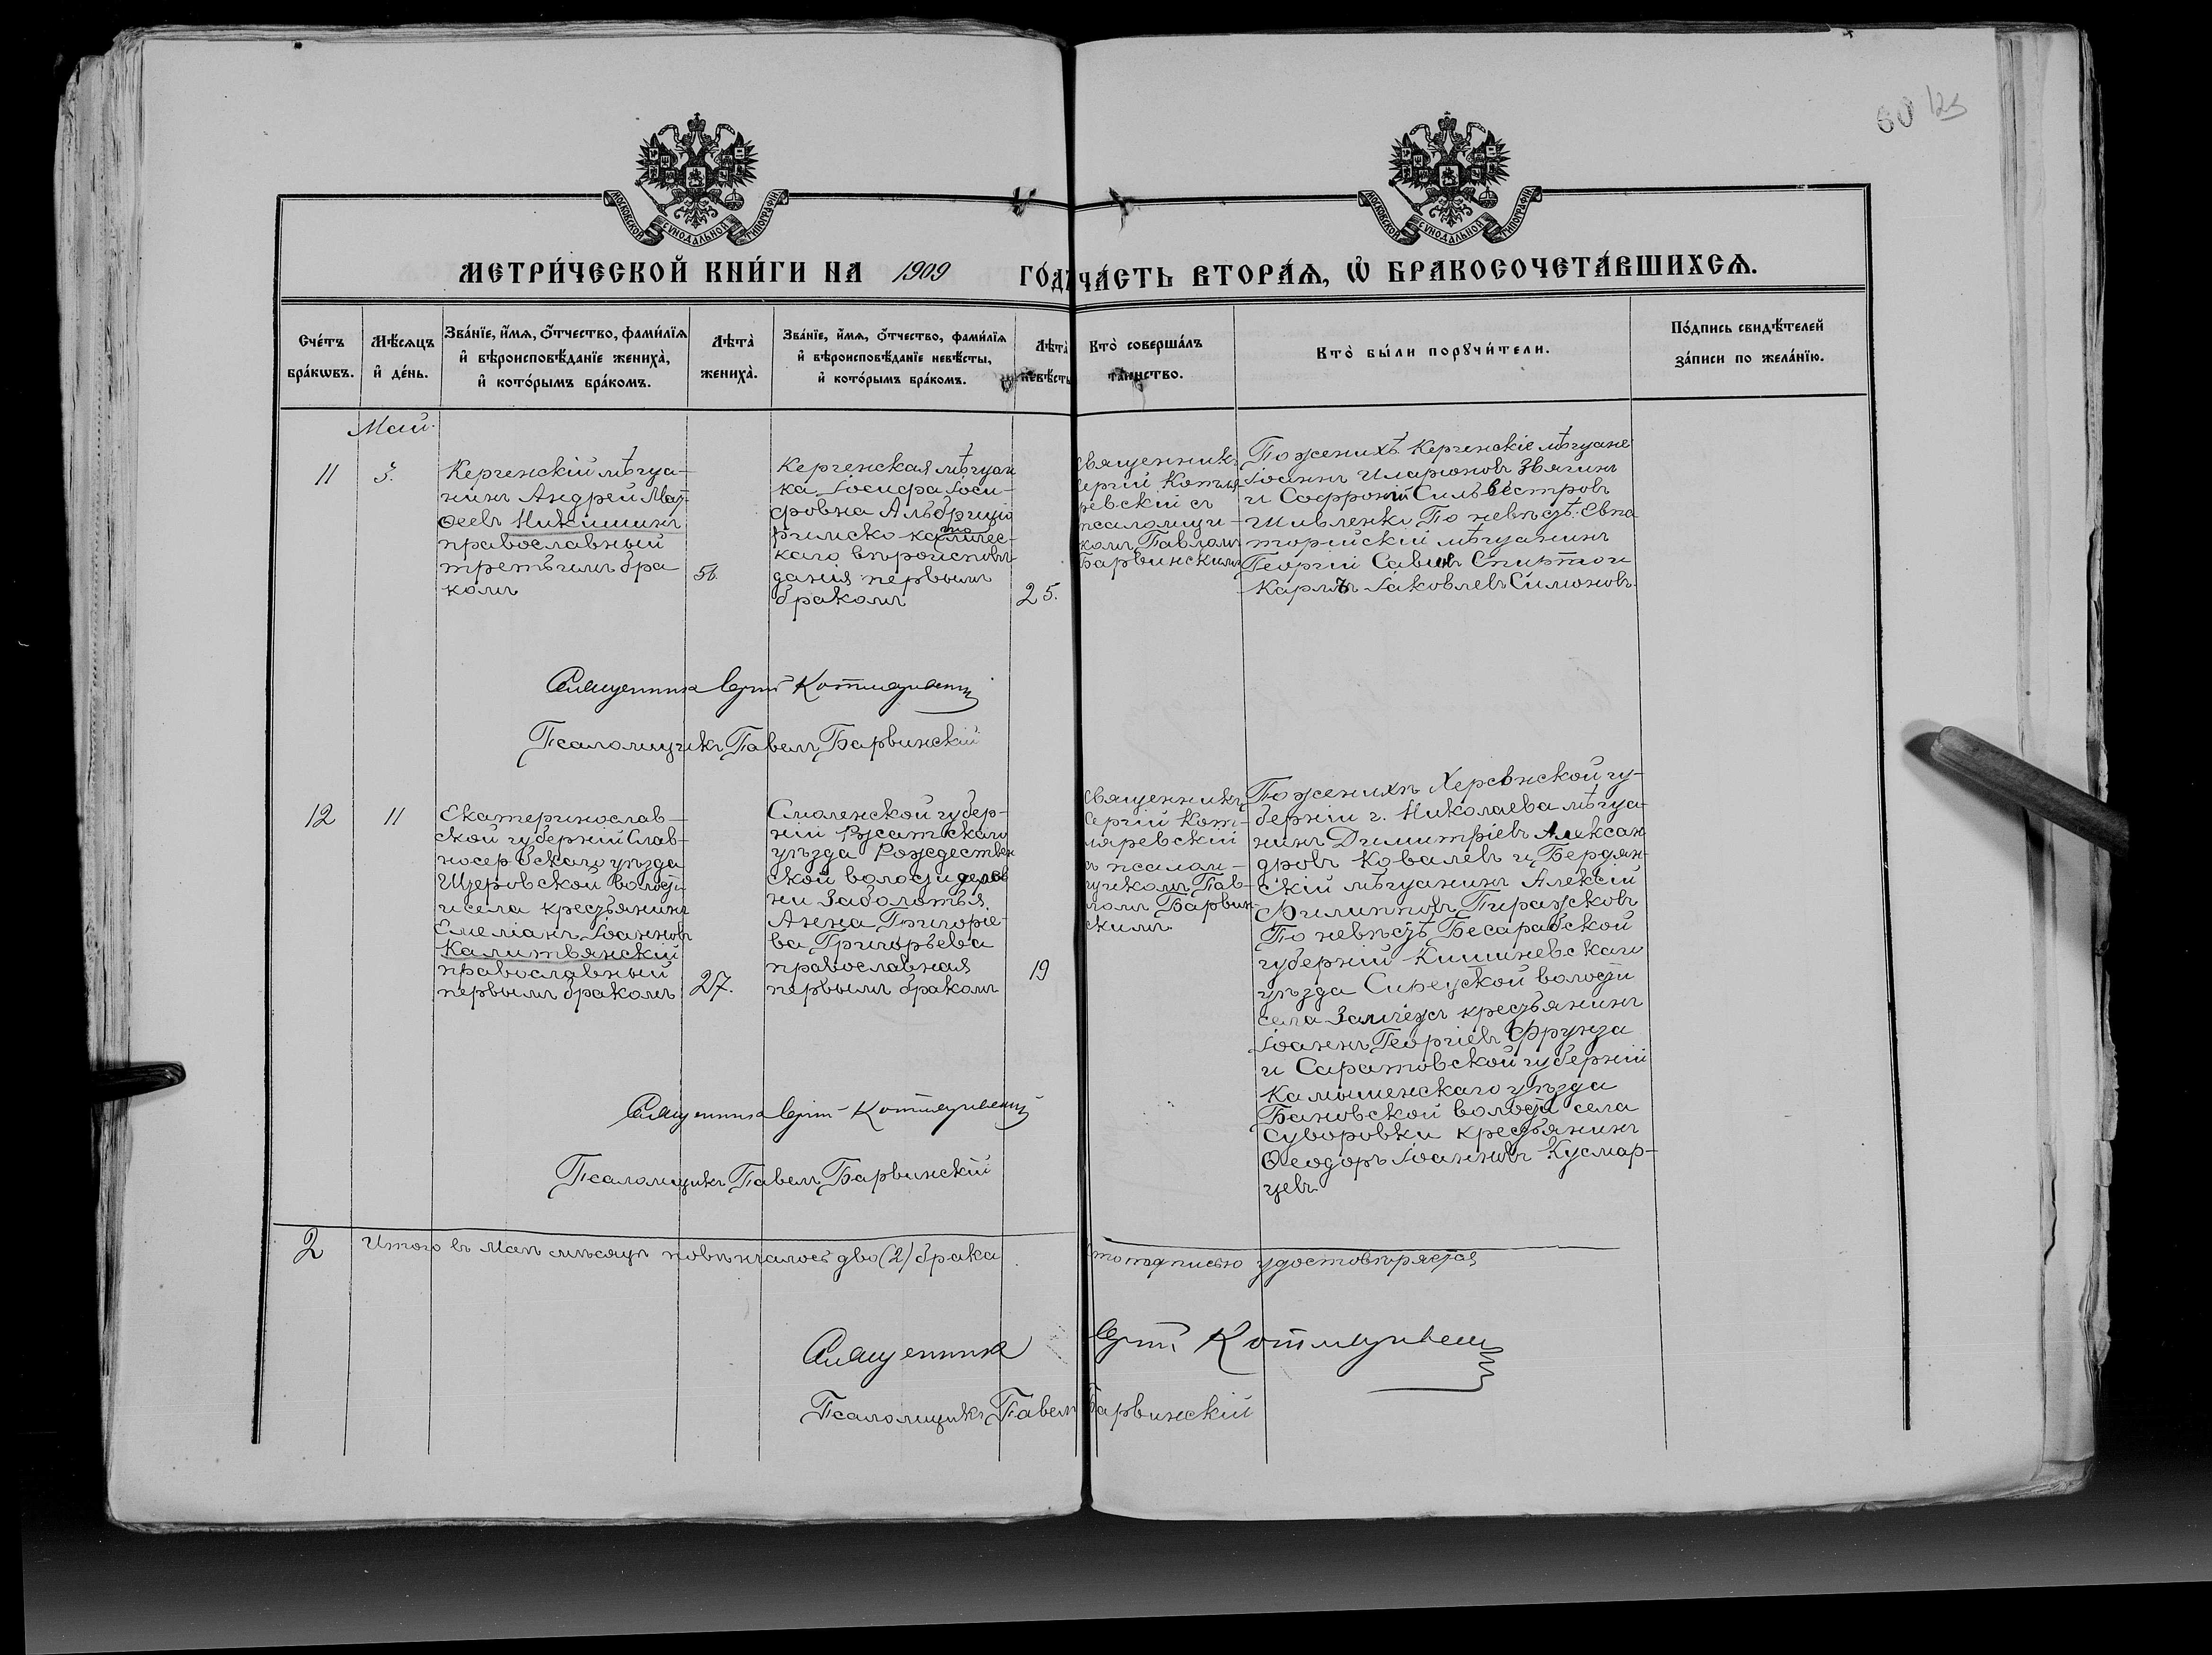 60 125
МОСКОВСКОЙ СУНОДАЛЬНОЙ ТИПОГРАФІИ
МОСКОВСКОЙ СУНОДАЛЬНОЙ ТИПОГРАФІИ
МЕТРИ́ЧЕСКОЙ КНИ́ГИ НА 1909 ГО́ДЪ
ЧА́СТЬ ВТОРА́Ѧ, Ѡ҆ БРАКОСОЧЕТА́ВШИХСѦ.
Сче́тъ
бра́кѡвъ.
Мѣ́сѧцъ
и҆ де́нь.
Зва́нїе, и҆́мѧ, ѻ҆́тчество, фами́лїѧ
и҆ вѣроисповѣ́данїе жениха̀,
и҆ кото́рымъ бра́комъ.
Лѣта̀
жениха̀.
Зва́нїе, и҆́мѧ, ѻ҆́тчество, фами́лїѧ
и҆ вѣроисповѣ́данїе невѣ́сты,
и҆ кото́рымъ бра́комъ.
Лѣта̀
невѣ́сты
Кто̀ соверша́лъ
та́инство.
Кто̀ бы́ли порꙋчи́тели.
По́дпись свидѣ́телей
за́писи по жела́нїю.
Май.
11
3.
Керченскій мѣща-
нинъ Андрей Мат-
ѳеевъ Никишинъ
православный
третьимъ бра
комъ
56.
Керченская мѣщан
ка Іосифа Іоси-
фовна Альбрицио
римско-католичес-
каго вѣроисповѣ-
данія первымъ
бракомъ
25.
Священникъ
Сергій Котля-
ревскій съ
псаломщи-
комъ Павломъ
Барвинскимъ
По женихѣ: Керченскіе мѣщане
Іоаннъ Иларіоновъ Звягинъ
и Софроній Сильвестровъ
Шивленко По невѣстѣ: Евпа
торійскій мѣщанинъ
Георгій Савинъ Спирто и
Карлъ Іаковлевъ Симоновъ.
Священникъ Сергій Котляревскій
Псаломщикъ Павелъ Барвинскій
12
11
Екатеринослав-
ской губерніи Слав-
носербскаго уѣзда
Щеровской волости
и села крестьянинъ
Емеліанъ Іоанновъ
Калитвянскій
православный
первымъ бракомъ
27.
Смоленской губер-
ніи Гжатскаго
уѣзда Рождествен
ской волости дерев
ни Заболотья
Анна Григоріе-
ва Григорьева
православная
первымъ бракомъ
19
Священникъ
Сергій Кот-
ляревскій
съ псалом-
щикомъ Пав-
ломъ Барвин
скимъ.
По женихѣ Херсонской гу-
берніи г. Николаева мѣща-
нинъ Димитріевъ Алексан
дровъ Ковалевъ и Бердян-
скій мѣщанинъ Алексій
Филипповъ Пиражковъ
По невѣстѣ Бесарабской
губерніи Кишиневскаго
уѣзда Сирецкой волости
села крестьянинъ
Іоаннъ Георгіевъ Фрунза
и Саратовской губерніи
Камышенскаго уѣзда
Бановской волости села
Суворовки крестьянинъ
Ѳеодоръ Іоанновъ Кусмар-
цевъ.
Священникъ Сергій Котляревскій
Псаломщикъ Павелъ Барвинскій
2 Итого въ Маѣ мѣсяцѣ повѣнчалось два (2) брака что подписью удостовѣряется
Священникъ Сергій Котляревскій
Псаломщикъ Павелъ Барвинскій